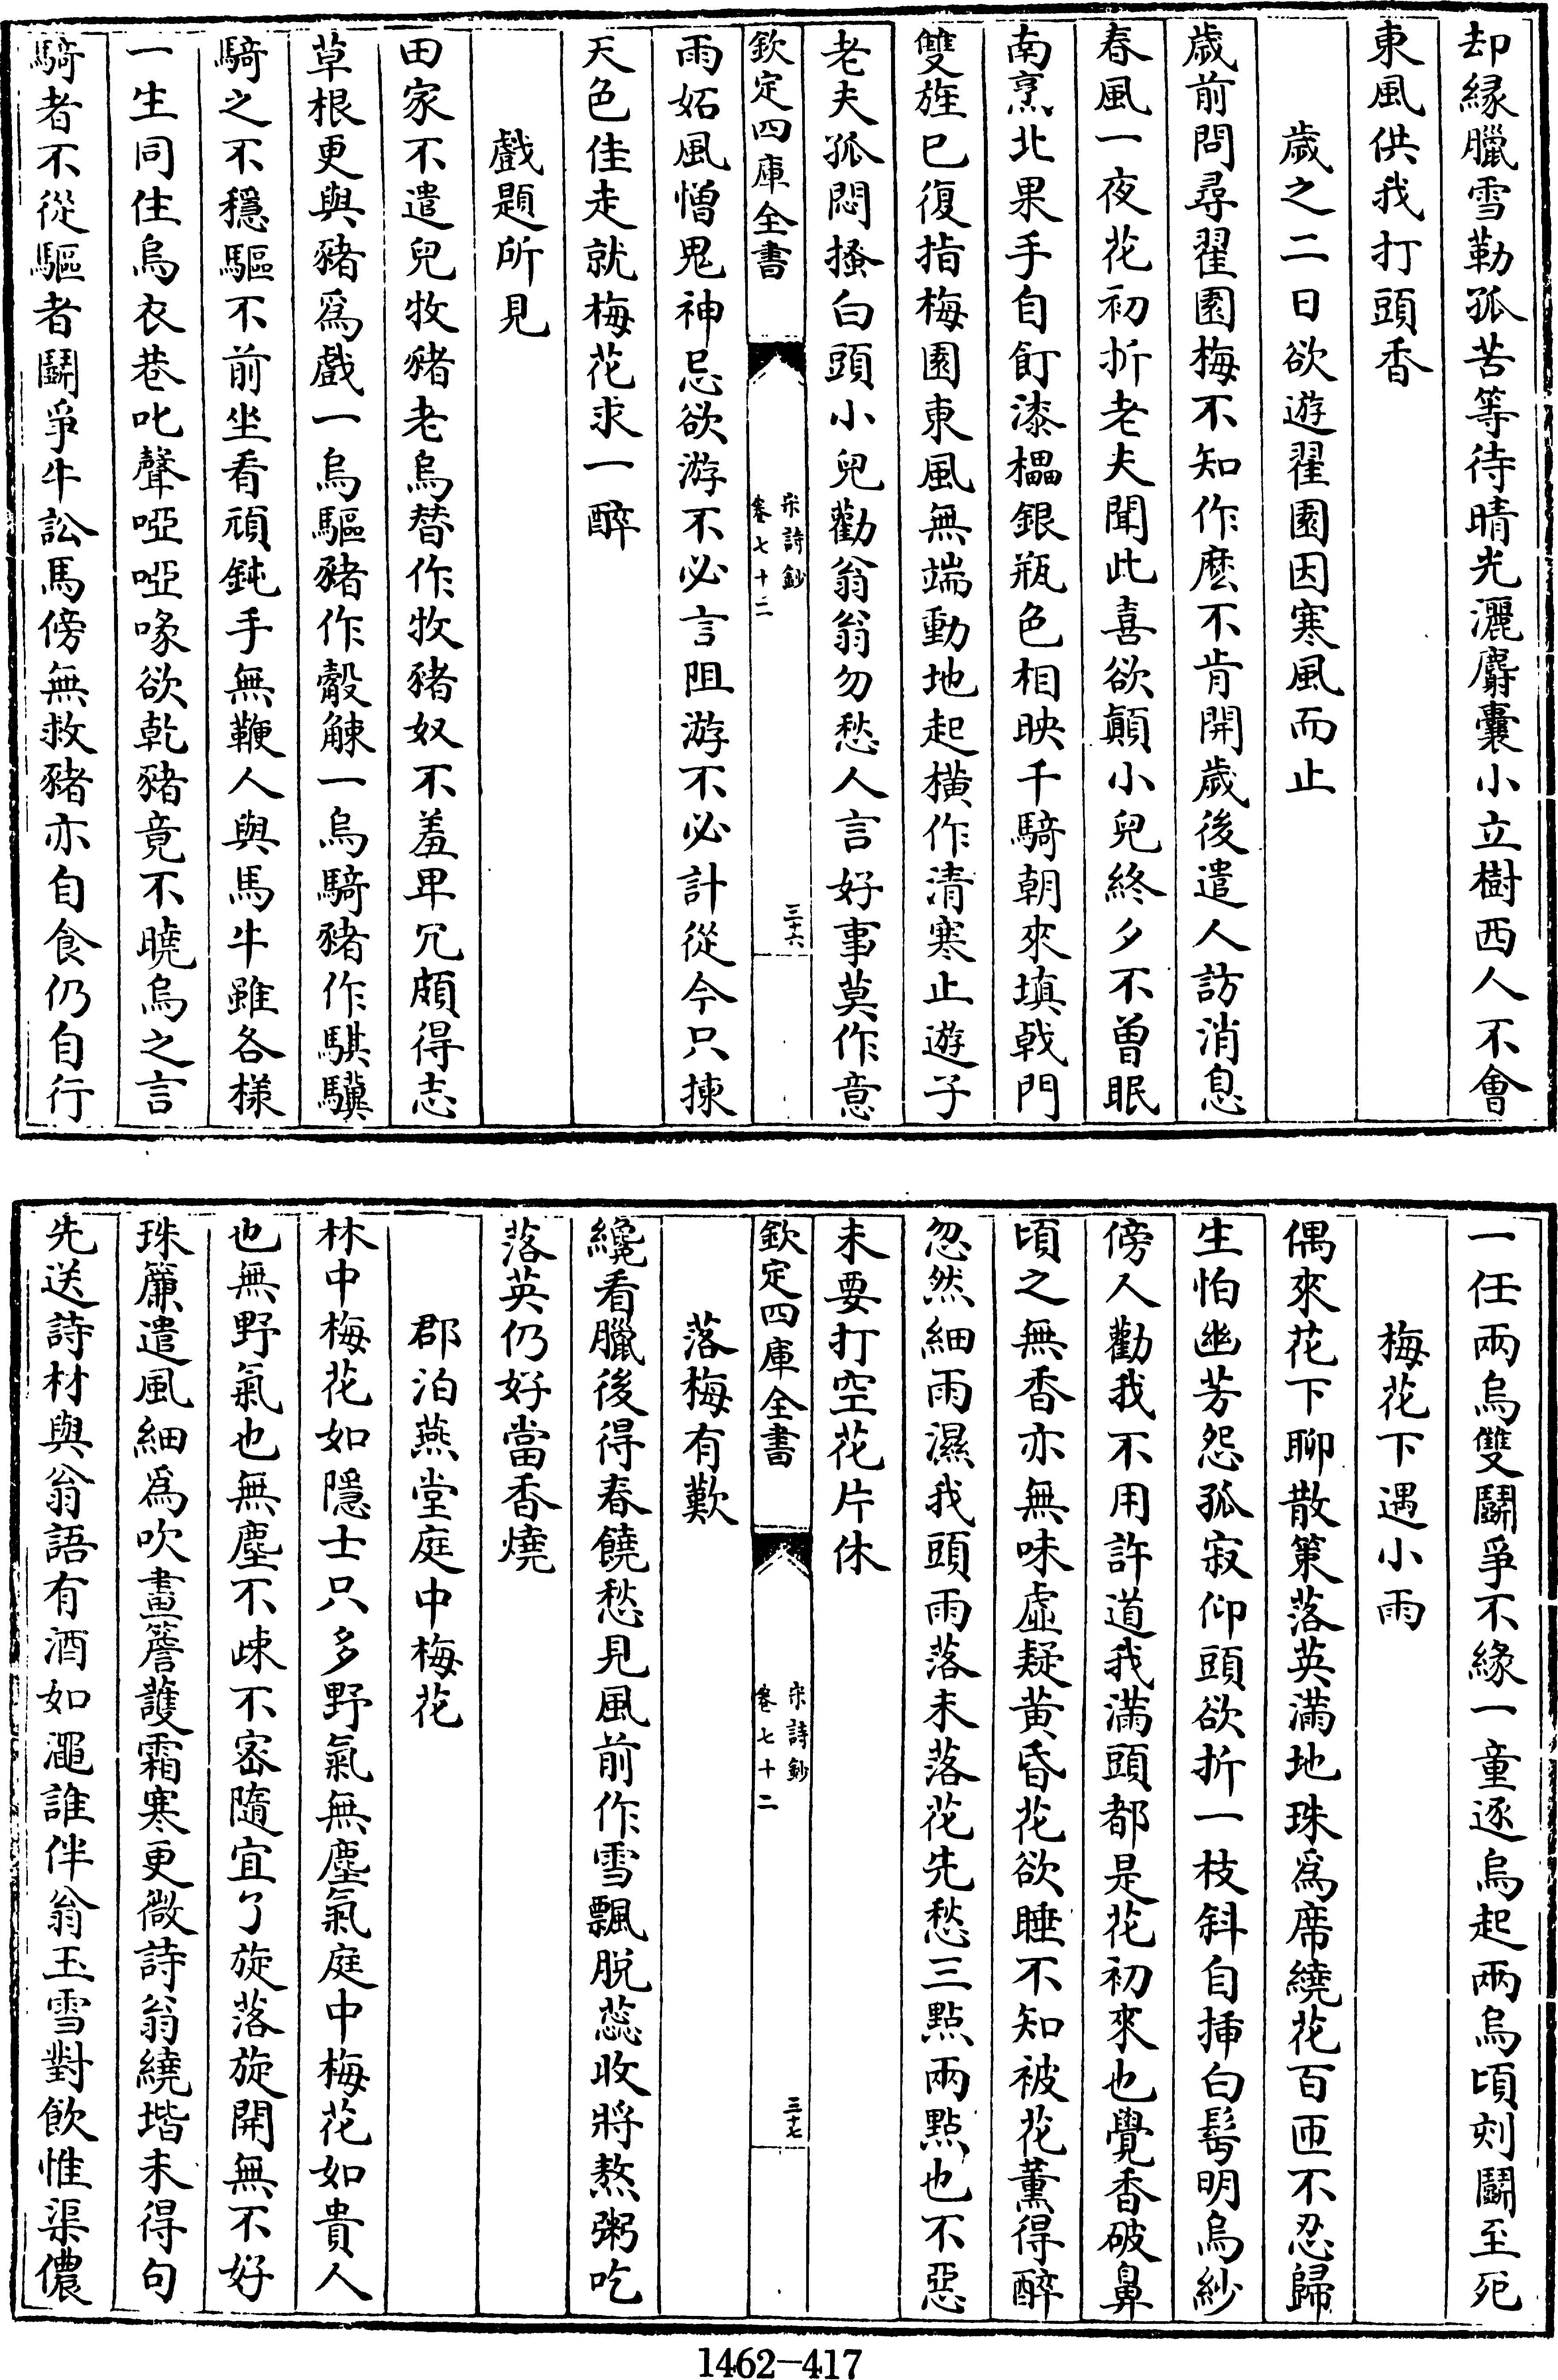 却緣臘雪勒孤苦等待晴光灑麝囊小立樹西人不會
東風供我打頭香
歲之二日欲遊翟園因寒風而止
歲前問尋翟園梅不知作麽不肯開歲後遣人訪消息
春風一夜花初折老夫聞此喜欲顛小兒終夕不曾眠
南烹北果手自飣漆櫑銀瓶色相映千騎朝來填戟門
雙旌已復指梅園東風無端動地起橫作清寒止遊子
老夫孤悶搔白頭小兒勸翁翁勿愁人言好事莫作意
欽定四庫全書
宋詩鈔
卷七十二
三十六
雨妬風憎鬼神忌欲游不必言阻游不必計從今只揀
天色佳走就梅花求一醉
戲題所見
田家不遣兒牧豬老烏替作牧豬奴不羞卑冗頗得志
草根更與豬爲戲一烏驅豬作觳觫一烏騎豬作騏驥
騎之不穩驅不前坐看頑鈍手無鞭人與馬牛雖各様
一生同住烏衣巷叱聲啞啞喙欲乾豬竟不曉烏之言
騎者不從驅者鬭爭牛訟馬傍無救豬亦自食仍自行
一任兩烏雙鬭爭不緣一童逐烏起兩烏頃刻鬭至死
梅花下遇小雨
偶來花下聊散策落英滿地珠爲席繞花百匝不忍歸
生怕幽芳怨孤寂仰頭欲折一枝斜自挿白髩明烏紗
傍人勸我不用許道我滿頭都是花初來也覺香破鼻
頃之無香亦無味虛疑黃昏花欲睡不知被花薰得醉
忽然細雨濕我頭雨落未落花先愁三點兩點也不惡
未要打空花片休
欽定四庫全書
宋詩鈔
卷七十二
三十七
落梅有歎
纔看臘後得春饒愁見風前作雪飄脱蕊收將熬粥吃
落英仍好當香燒
郡泊燕堂庭中梅花
林中梅花如隱士只多野氣無塵氣庭中梅花如貴人
也無野氣也無塵不疎不宻隨宜了旋落旋開無不好
珠簾遣風細爲吹畫簷䕶霜寒更微詩翁繞堦未得句
先送詩材與翁語有酒如澠誰伴翁玉雪對飲惟渠儂
1462-417